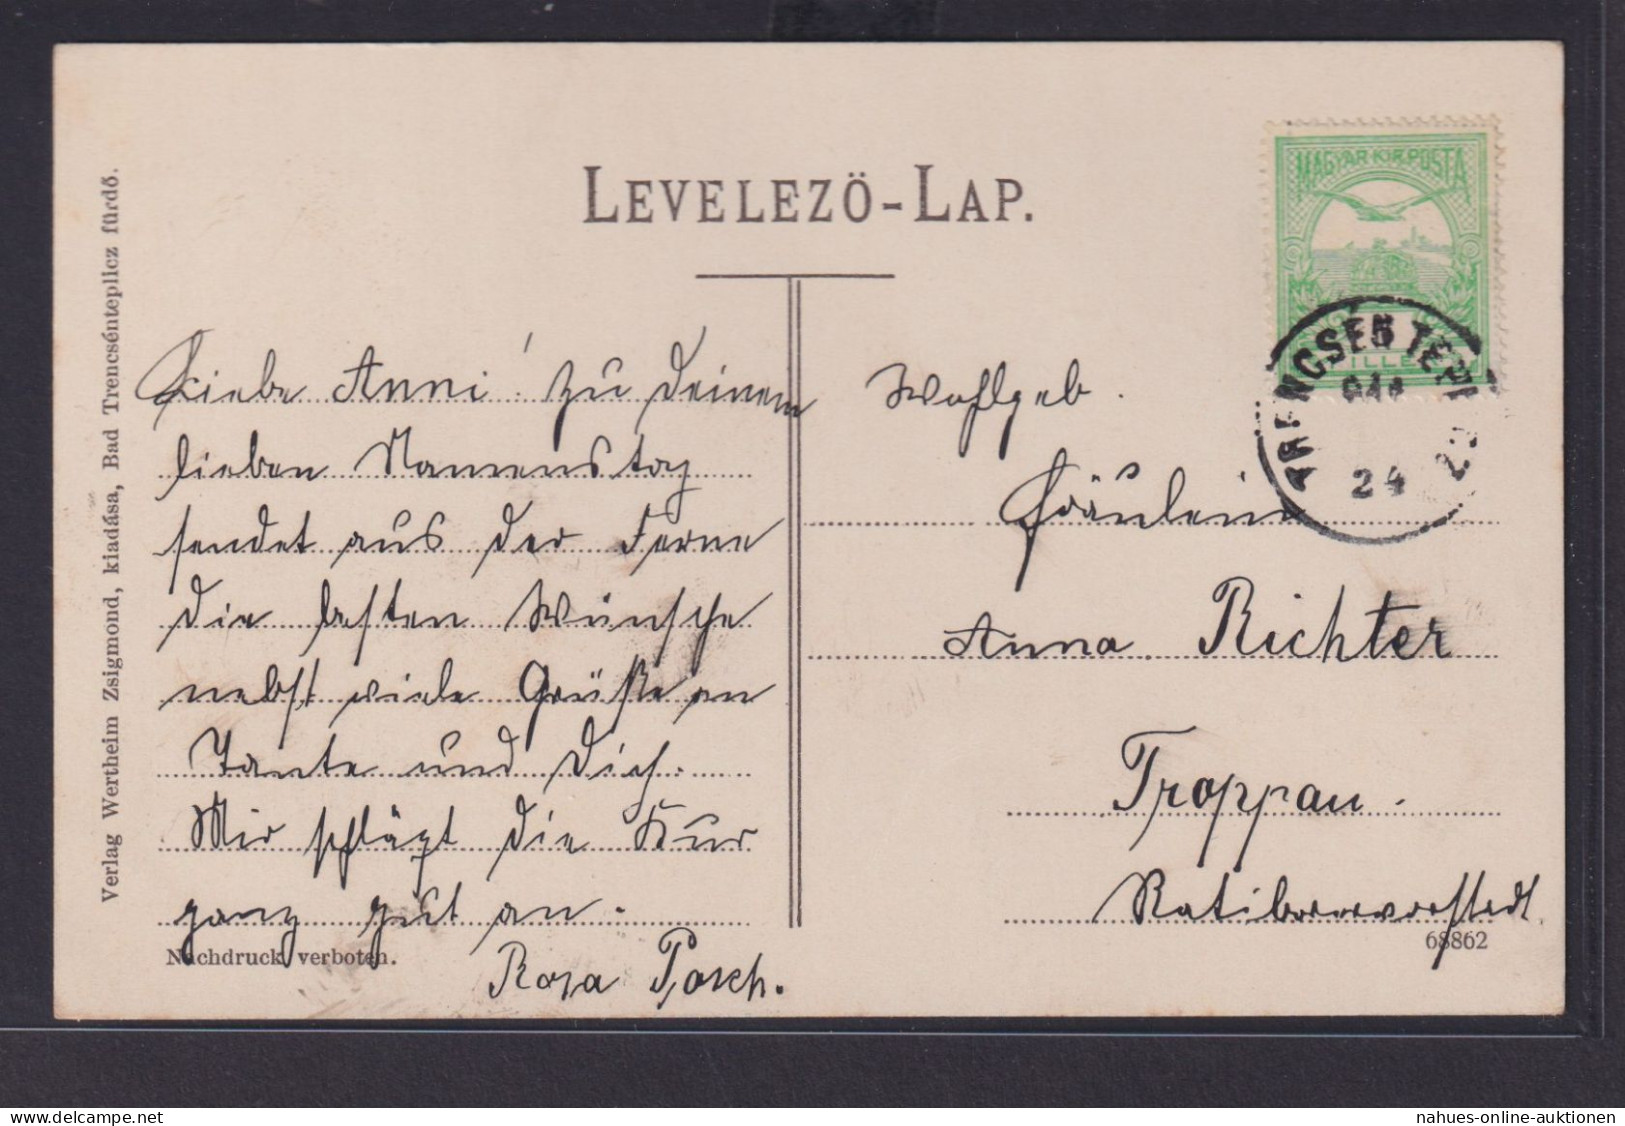 LEVELEZÖ-LAP.
MAGYAR KIR. POSTA
TRENCSÉN TEPL
24
Verlag Wertheim Zsigmond, kiadása, Bad Trencsénteplicz fürdő.
Liebe Anni! Zu Deinem
lieben Namenstag
sendet aus der Ferne
die besten Wünsche
nebst viele Grüße an
Tante und Dich.
Mir schlägt die Kur
ganz gut an.
Rosa Posch.
Nachdruck verboten.
Wohlgeb.
Fräulein
Anna Richter
Troppau.
Ratiborervorstadt
68862
nahues-online-auktionen
www.delcampe.net